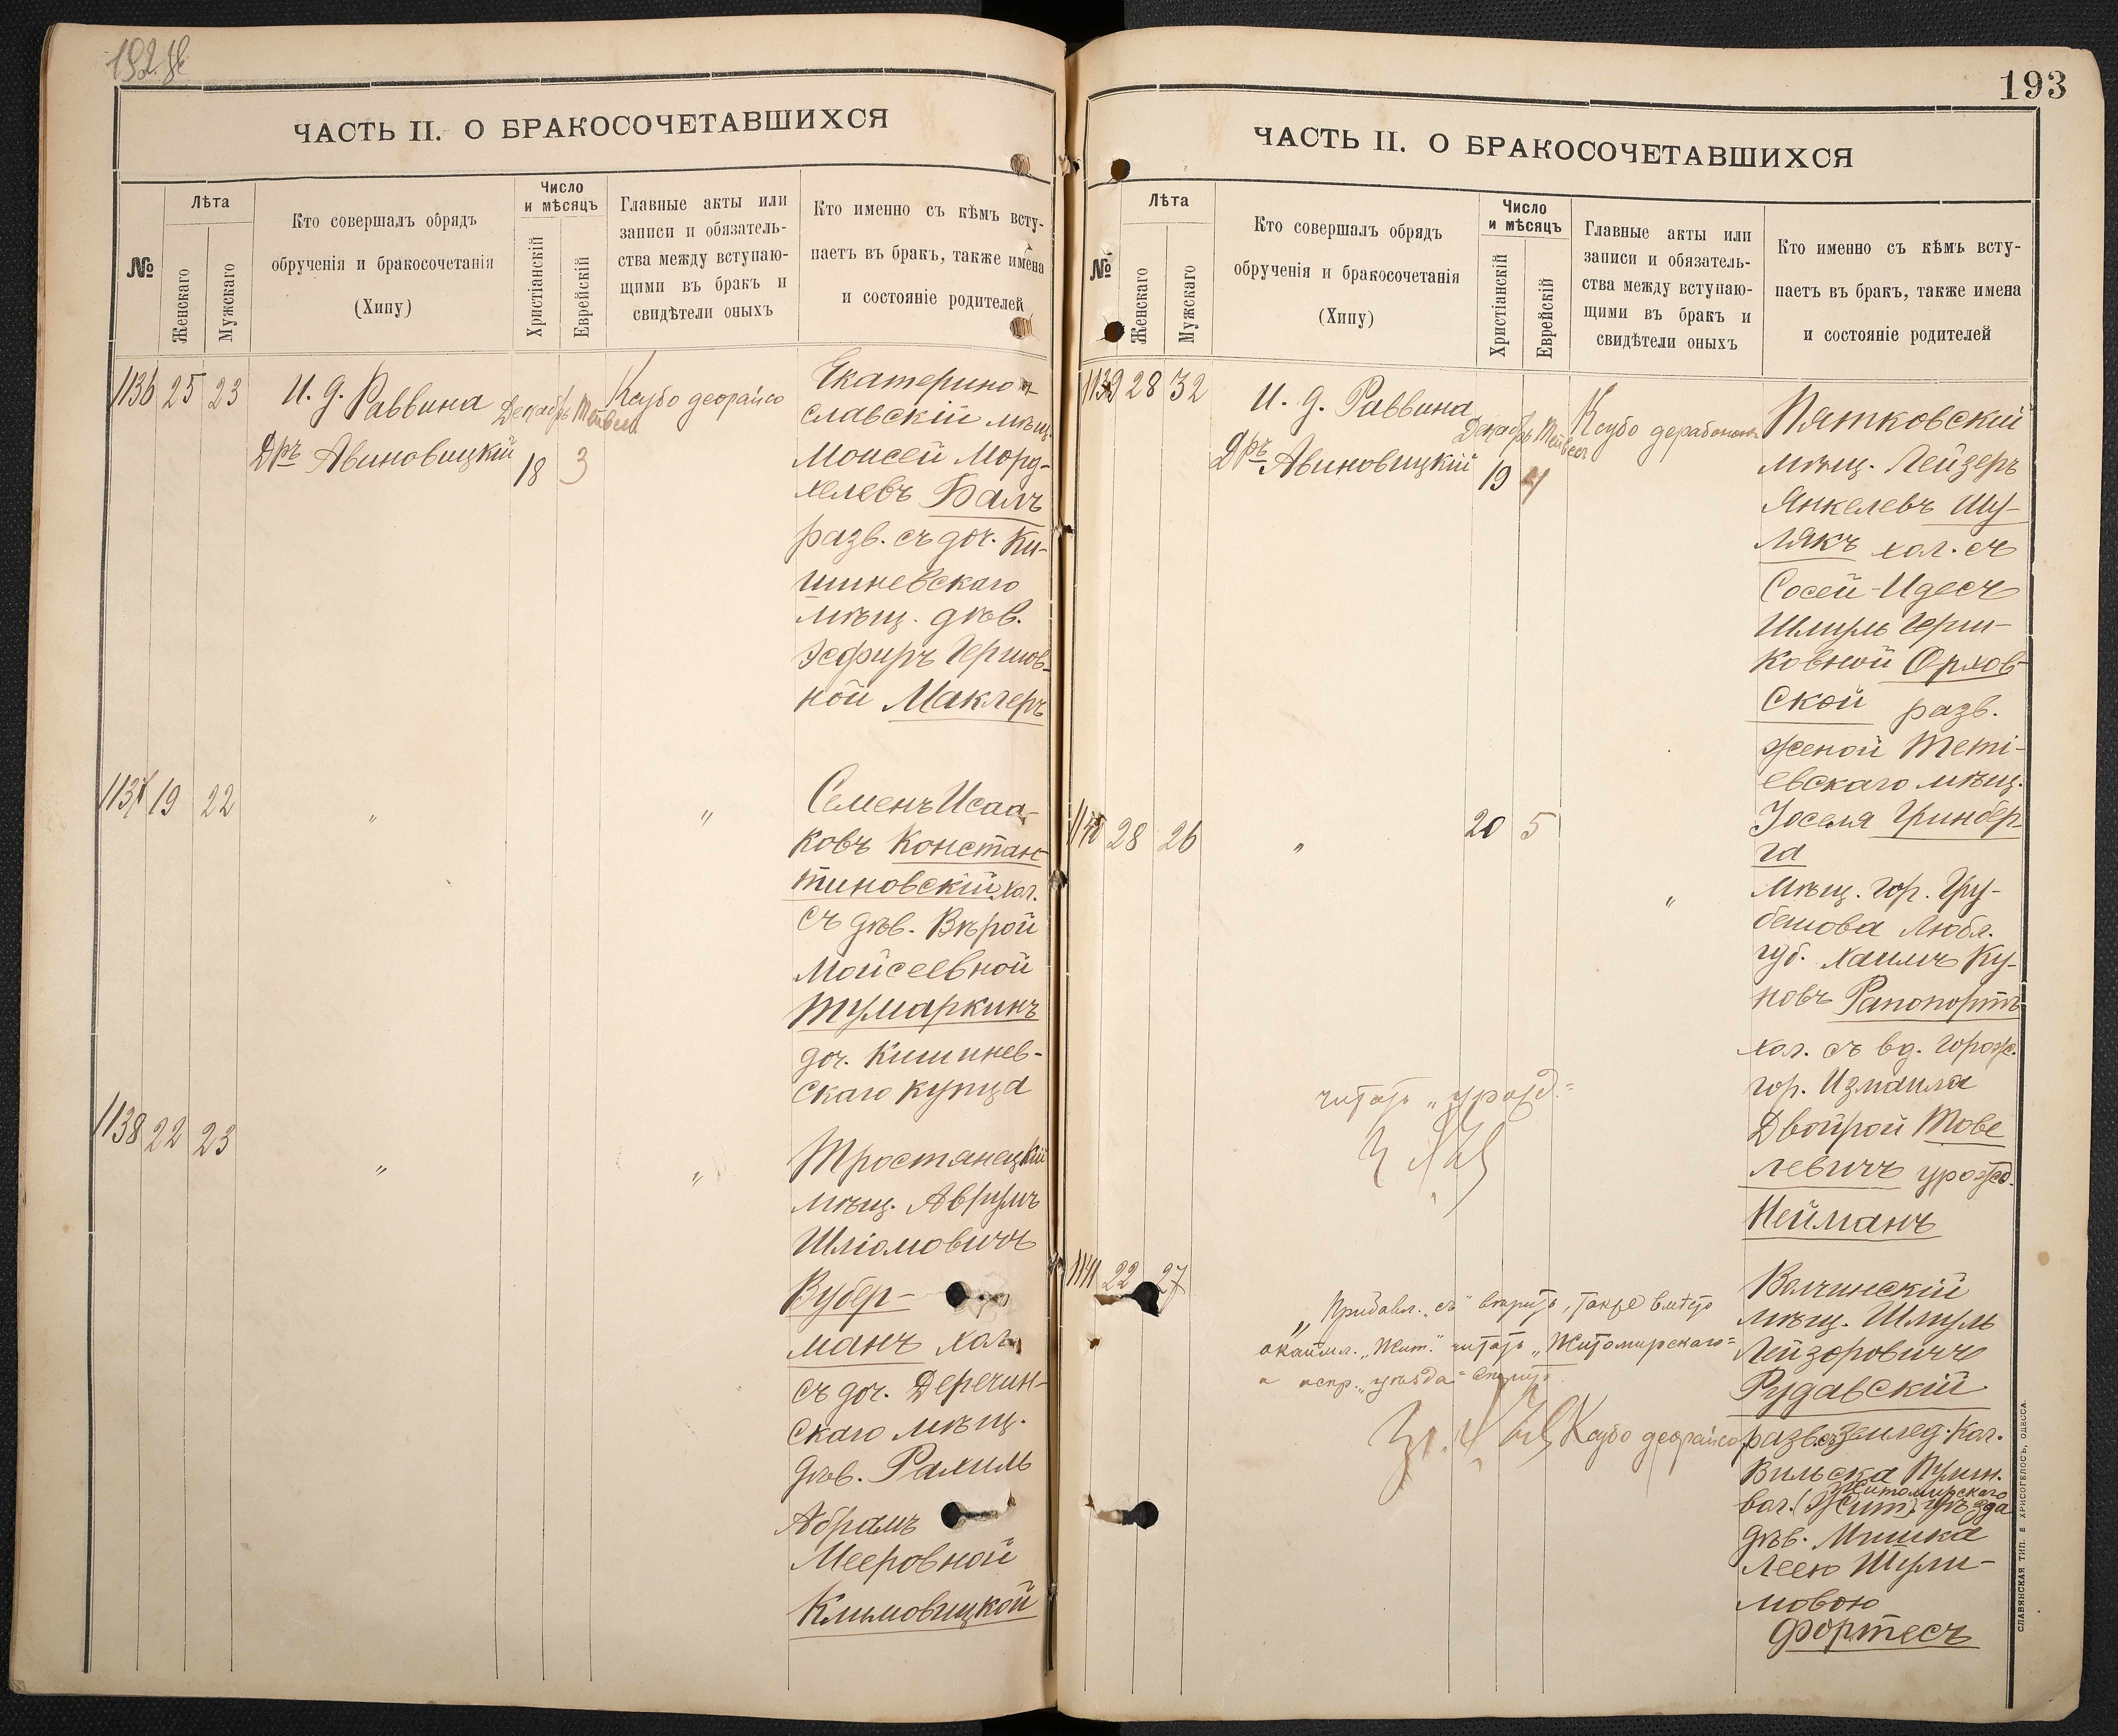 ЧАСТЬ II. О БРАКОСОЧЕТАВШИХСЯ
№
Лѣта
Женскаго
Мужскаго
Кто совершалъ обрядъ
обрученія и бракосочетанія
(Хипу)
Число
и мѣсяцъ
Христіанскій
Еврейскій
Главные акты или
записи и обязатель-
ства между вступаю-
щими въ бракъ и
свидѣтели оныхъ
Кто именно съ кѣмъ всту-
паетъ въ бракъ, также имена
и состояніе родителей
1136 25 23
И. д. Раввина
Дръ Авиновицкій
Декабрь
18 3
Ксубо деорайсо
Екатерино-
славскій мѣщ.
Моисей Морд-
хелевъ Балъ
разв. съ доч. Ки-
шиневскаго
мѣщ. дѣв.
Эсфиръ Гершов-
ной Маклеръ
1137 19 22
" "
Семенъ Исаа-
ковъ Констан-
тиновскій хол.
съ дѣв. Вѣрой
Мойсеевной
Тумаркинъ
доч. Кишинев-
скаго купца
1138 22 23
" "
Тростянецкій
мѣщ. Аврумъ
Шліомовичъ
Вубер-
манъ хол.
съ доч. Деречин-
скаго мѣщ.
дѣв. Рахиль
Абрамъ
Мееровной
Климовицкой
193
ЧАСТЬ II. О БРАКОСОЧЕТАВШИХСЯ
№
Лѣта
Женскаго
Мужскаго
Кто совершалъ обрядъ
обрученія и бракосочетанія
(Хипу)
Число
и мѣсяцъ
Христіанскій
Еврейскій
Главные акты или
записи и обязатель-
ства между вступаю-
щими въ бракъ и
свидѣтели оныхъ
Кто именно съ кѣмъ всту-
паетъ въ бракъ, также имена
и состояніе родителей
1139 28 32
И. д. Раввина
Дръ Авиновицкій
Декабрь
19 4
Ксубо
Пятковскій
мѣщ. Лейзеръ
Янкелевъ Шу-
лякъ хол. съ
Сосей-Идесъ
Шмиль Герш-
ковной Орхов-
ской разв.
женой Теті-
евскаго мѣщ.
Іоселя Гринбер-
га
1140 28 26
" 20 5 "
мѣщ. гор. Гру-
бешова Любл.
губ. Хаимъ Ку-
новъ Рапопортъ
хол. съ вд. горож.
гор. Измаила
Двойрой Тове
левичъ урожд.
Нейманъ
читать „урожд."
1141 22 27
"
Придавл. „съ" вѣрить, также вмѣсто
окаймл. „Жит." читать „Житомирскаго"
и испр. „уѣзда"
Ксубо деорайсо
Волчинскій
мѣщ. Шмуль
Лейзоровичъ
Рудавскій
разв. съ землед. кол.
Вильска Пулин.
Житомирскаго
вол. (Жит). уѣзда
дѣв. Мишка
Леею Шули-
мовою
Фортесъ
СЛАВЯНСКАЯ ТИП. Е ХРИСОГЕЛОСЪ, ОДЕССА